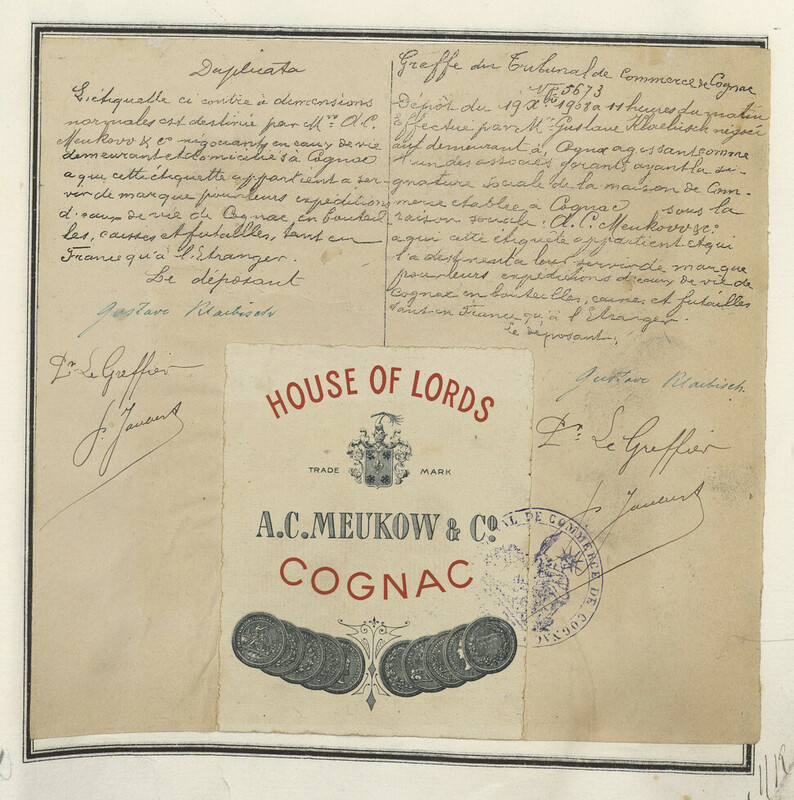 Duplicata
L'étiquette ci contre à dimensions
normales est destinée par Mrs A.C.
Meukow & Co négociants en eaux de vie
demeurant et domiciliés à Cognac
a qui cette étiquette appartient a ser-
vir de marque pour leurs expeditions
d'eaux de vie de Cognac, en bouteil
les, caisses et futailles, tant en
France qu'à l'Etranger.
Le déposant
Gustave Klaebisch
Le Greffier
J. Jaubert
Greffe du Tribunal de Commerce de Cognac
No 5673
Dépôt du 19 Xbre 1903 a 11 heures du matin
Effectué par Mr Gustave Klaebisch négoci
ant demeurant à Cognac agissant comme
l'un des associés gérants ayant la si-
gnature sociale de la maison de Com-
merce etablee à Cognac sous la
raison sociale: A.C. Meukow & Co
a qui cette étiquète appartient et qui
l'a destine a leur servir de marque
pour leurs expeditions d'eaux de vie de
Cognac en bouteilles, caisses et futailles
tant en France qu'à l'Etranger.
Le déposant,
Gustave Klaebisch.
Le Greffier
J. Jaubert
HOUSE OF LORDS
TRADE MARK
A.C. MEUKOW & Co.
COGNAC
AL DE COMMERCE DE COGNAC